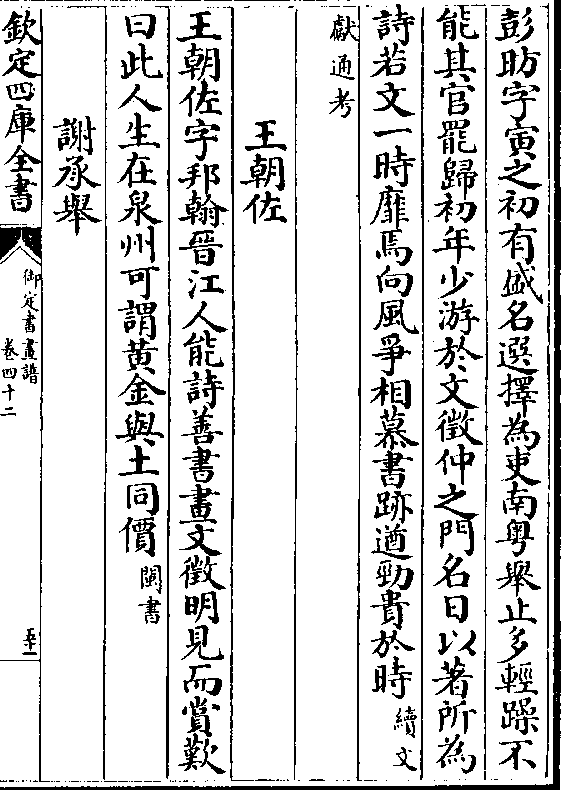 彭昉字寅之初有盛名選擇為吏南粤舉止多輕躁不
能其官罷歸初年少游於文徵仲之門名日以著所為
詩若文一時靡焉向風爭相慕書跡遒勁貴於時續文
獻通考
王朝佐
王朝佐字邦翰晉江人能詩善書畫文徵明見而賞歎
曰此人生在泉州可謂黄金與土同價閩書
謝承舉
欽定四庫全書
御定書畫譜
卷四十二
五十一